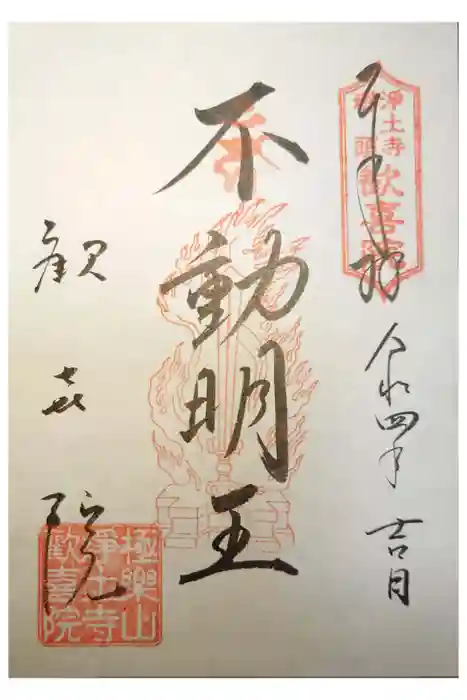 奉拝
令和四年 吉日
浄土寺
歓喜院
不動明王
歓喜院
極楽山
浄土寺
歓喜院